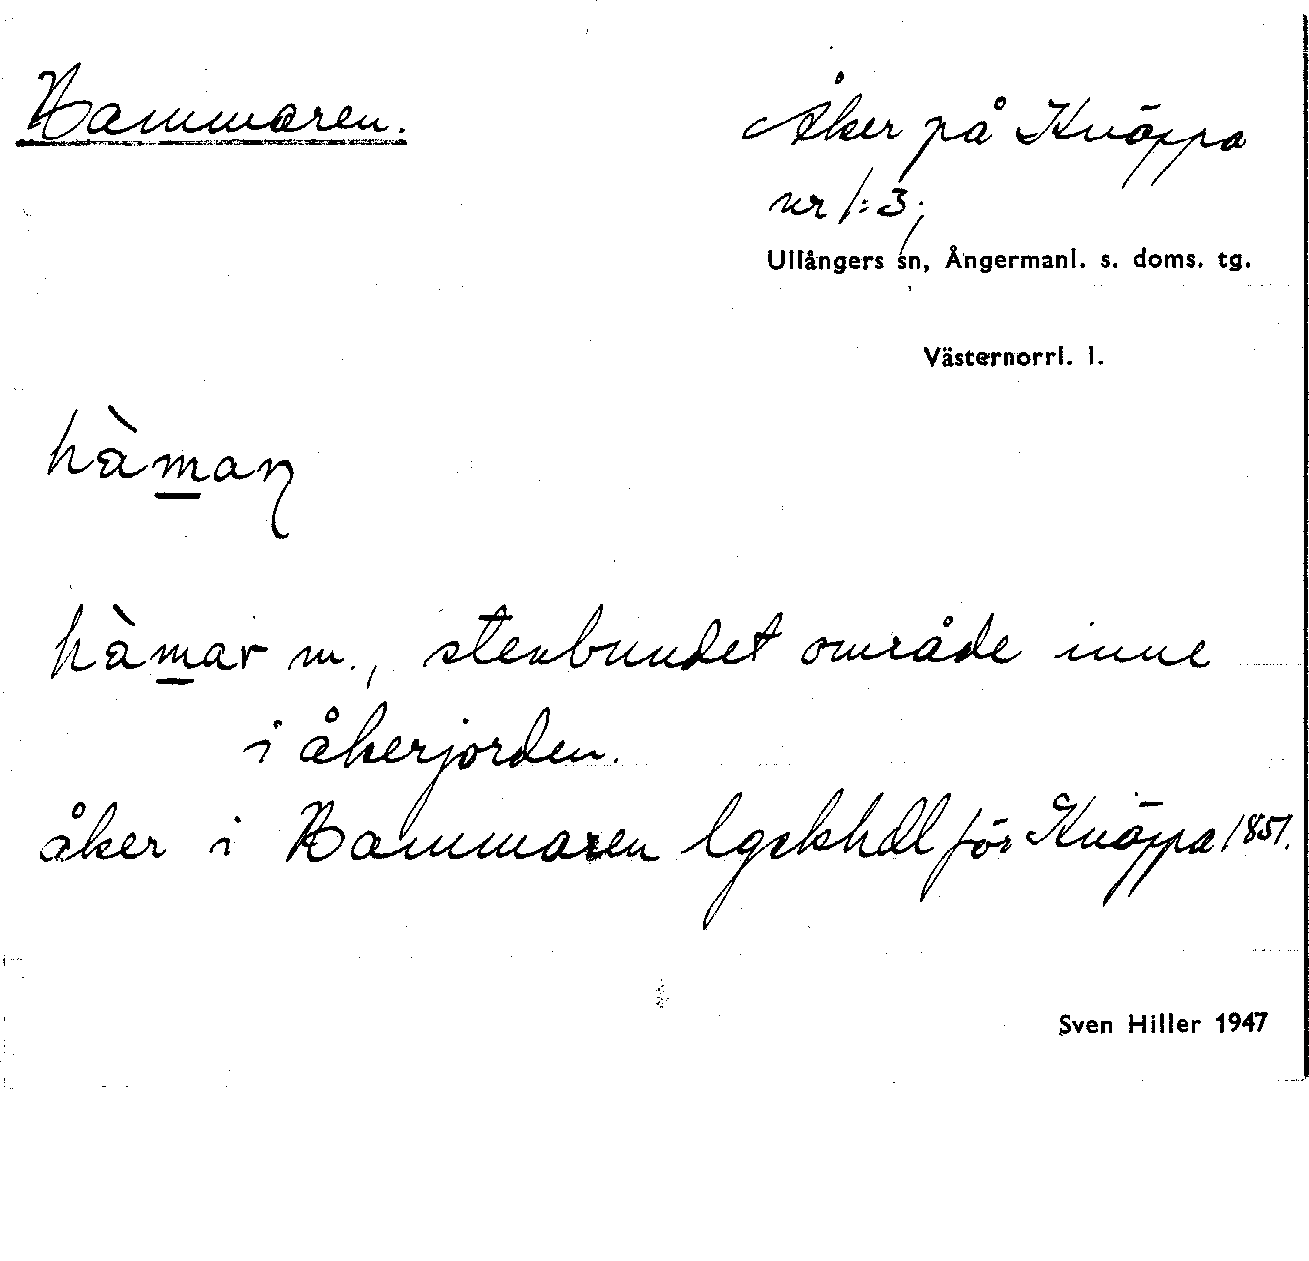 Hammaren.
Åker på Knäppa
nr 1:3;
Ullångers sn, Ångermanl. s. doms. tg.
Västernorrl. l.
hàm̲aṇ
hàm̲ar m., stenbundet område inne
i åkerjorden.
åker i Hammaren lgskhdl för Knäppa 1851.
Sven Hiller 1947